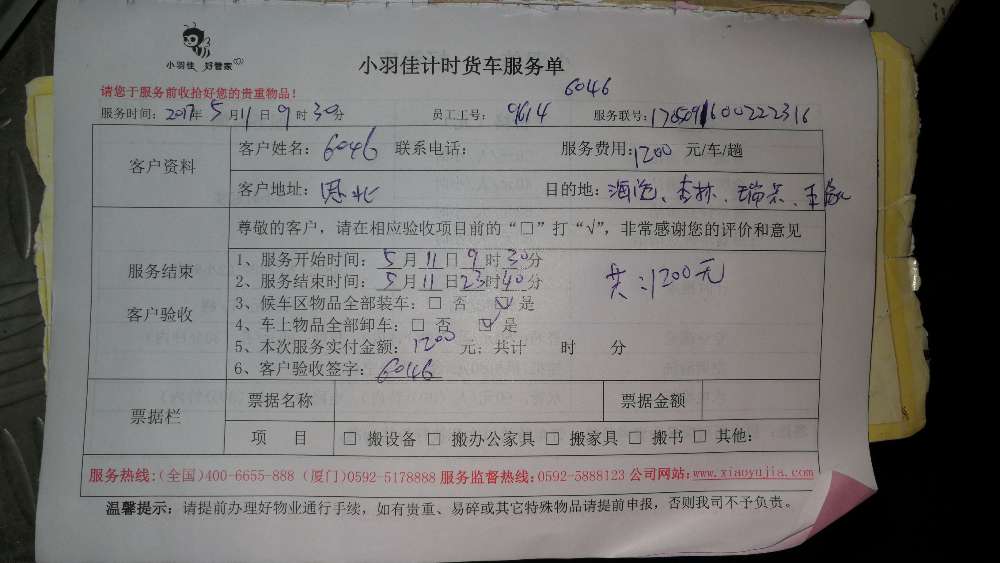 小羽佳 好管家
小羽佳计时货车服务单
6046
请您于服务前收拾好您的贵重物品！
服务时间：2017年5月11日9时30分 员工工号：9614 服务联号：
客户资料
客户姓名：6046 联系电话： 服务费用：1200 元/车/趟
客户地址：思北 目的地：海沧、杏林、瑞景、
尊敬的客户，请在相应验收项目前的“□”打“√”，非常感谢您的评价和意见
服务结束
客户验收
1、服务开始时间：5月11日9时30分
2、服务结束时间：5月11日23时40分
共：1200元
3、候车区物品全部装车：□ 否 ☑ 是
4、车上物品全部卸车：□ 否 ☑ 是
5、本次服务实付金额：1200 元；共计 时 分
6、客户验收签字：6046
票据栏
票据名称 票据金额
项 目 □ 搬设备 □ 搬办公家具 □ 搬家具 □ 搬书 □ 其他：
服务热线：(全国)400-6655-888 (厦门)0592-5178888 服务监督热线：0592-5888123 公司网站：www.xiaoyujia.com
温馨提示：请提前办理好物业通行手续，如有贵重、易碎或其它特殊物品请提前申报，否则我司不予负责。